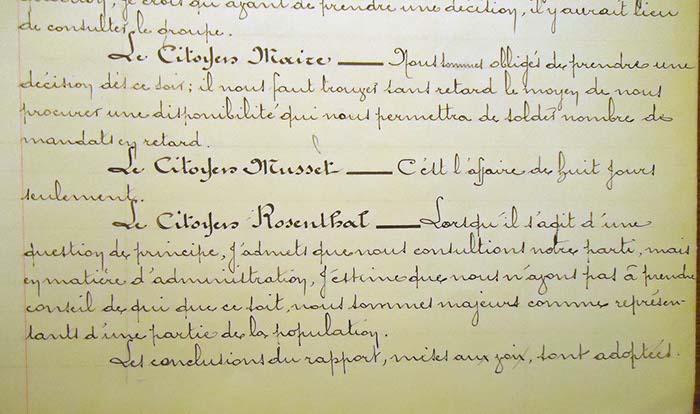 question, je crois qu'avant de prendre une décision, il y aurait lieu
de consulter le groupe.
Le Citoyen Maire — Nous sommes obligés de prendre une
décision dès ce soir; il nous faut trouver sans retard le moyen de nous
procurer une disponibilité qui nous permettra de solder nombre de
mandats en retard.
Le Citoyen Musset — C'est l'affaire de huit jours
seulement.
Le Citoyen Rosenthal — Lorsqu'il s'agit d'une
question de principe, j'admets que nous consultions notre parti, mais
en matière d'administration, j'estime que nous n'avons pas à prendre
conseil de qui que ce soit, nous sommes majeurs comme représen-
tants d'une partie de la population.
Les conclusions du rapport, mises aux voix, sont adoptées.